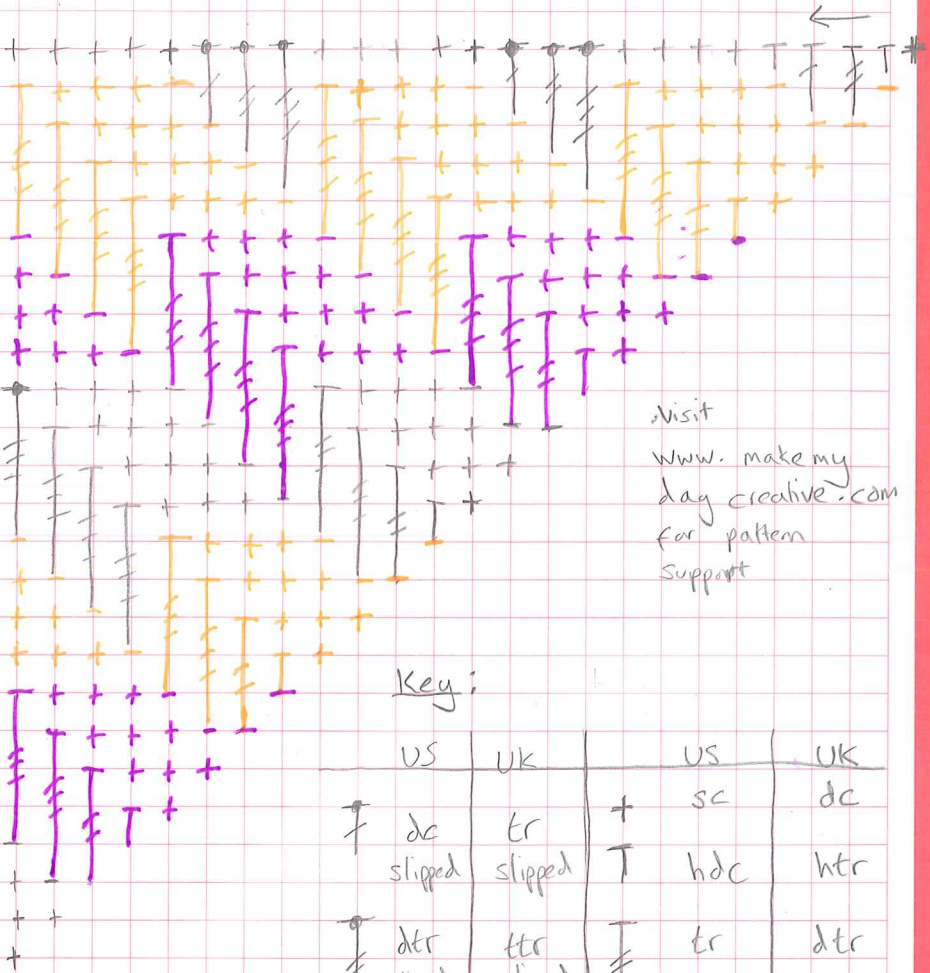 Visit
www. makemy
day creative.com
for pattern
support
Key:
US UK US UK
dc tr sc dc
slipped slipped hdc htr
dtr ttr tr dtr